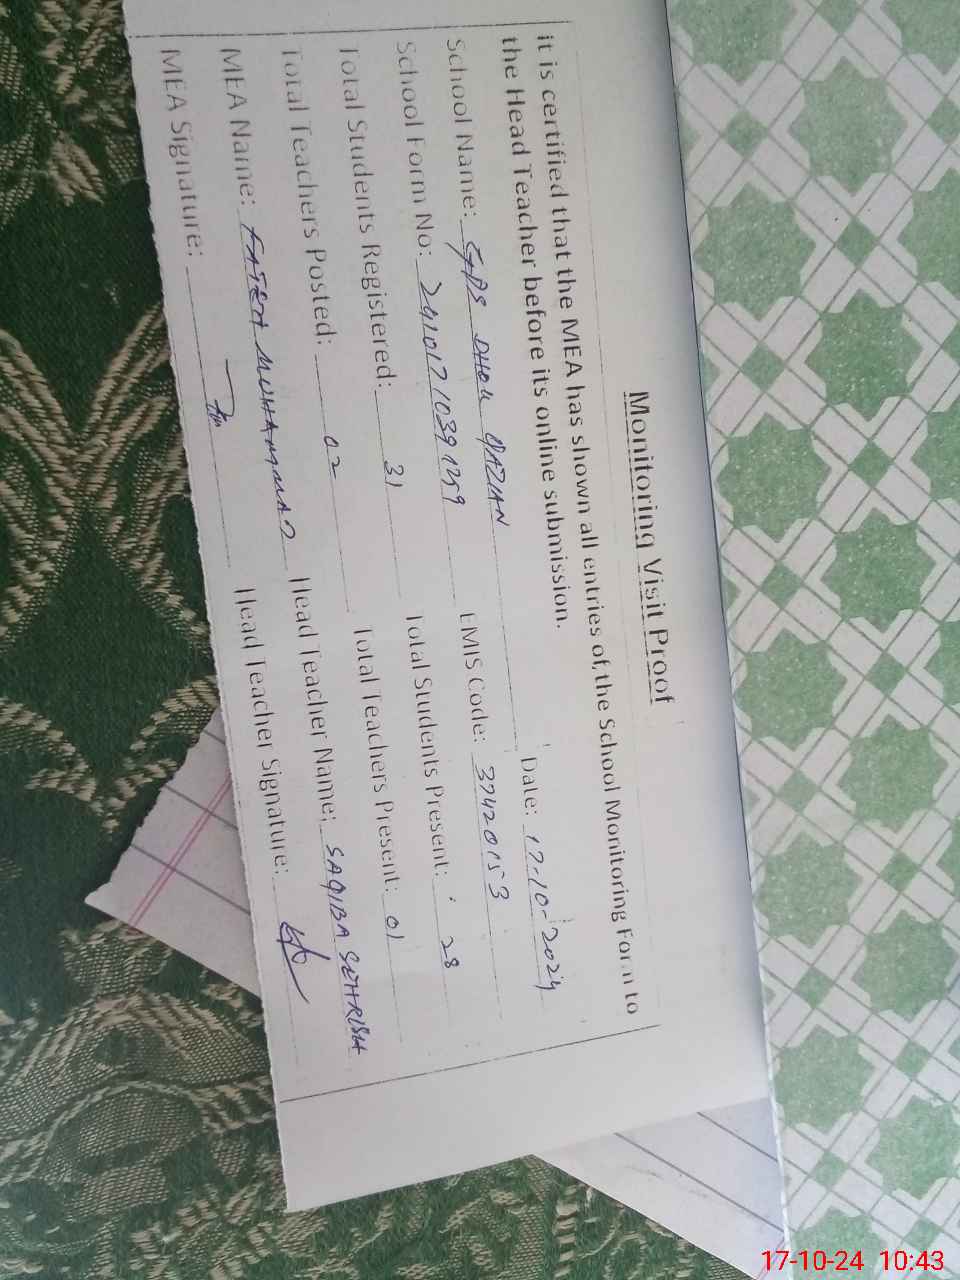 Monitoring Visit Proof
it is certified that the MEA has shown all entries of the School Monitoring Form to
the Head Teacher before its online submission.
Date: 17-10-2024
School Name: GPS DHOK QAZIAN
School Form No: 24101710391259 EMIS Code: 37420153
Total Students Registered: 31 Total Students Present: 28
Total Teachers Posted: 02 Total Teachers Present: 01
MEA Name: FATEH MUHAMMAD Head Teacher Name: SAQIBA SEHRISH
MEA Signature: Head Teacher Signature:
17-10-24 10:43